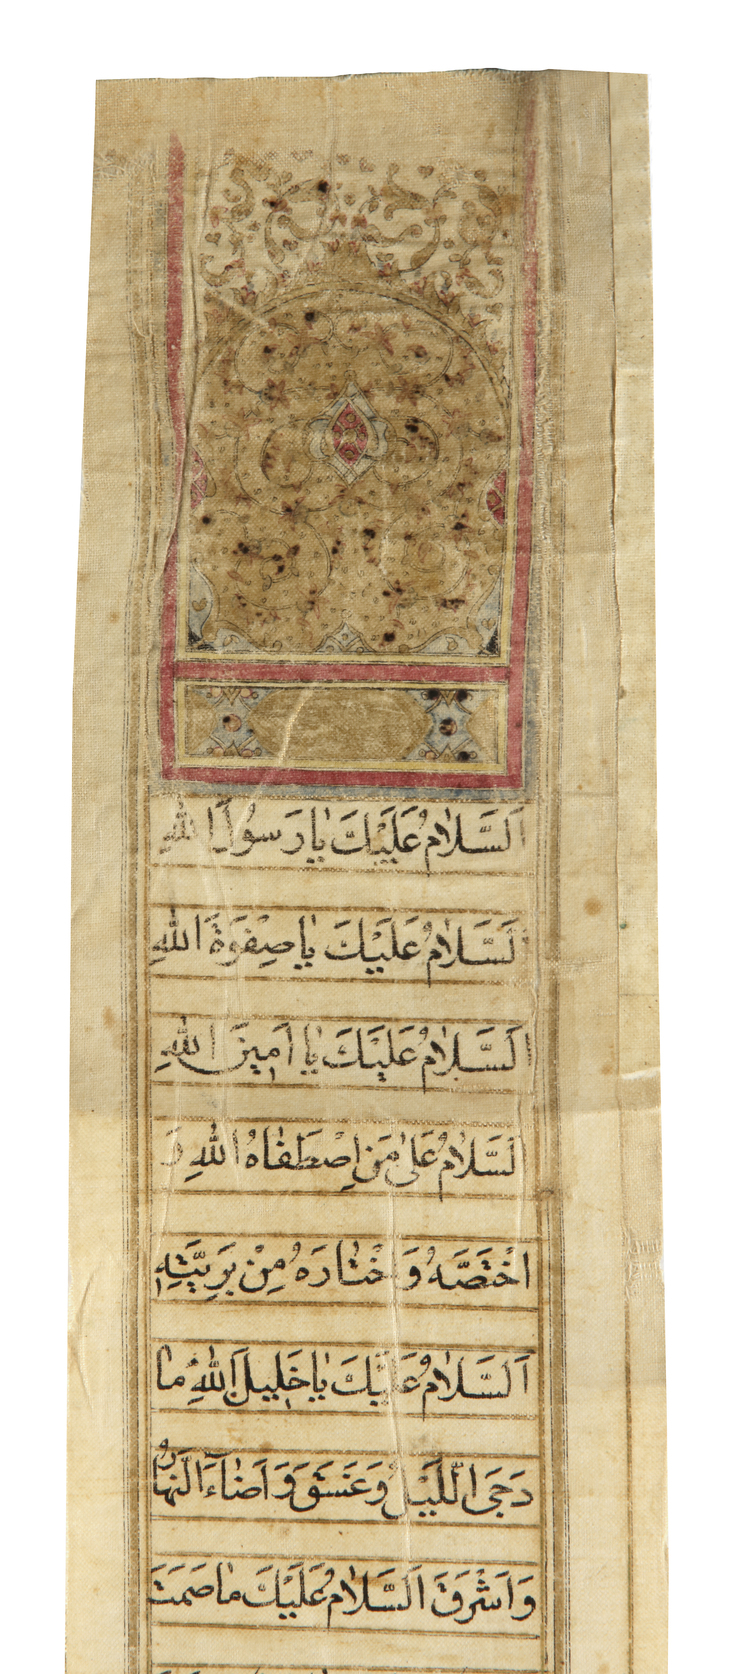 اَلسَّلاٰمُ عَلَيْكَ يٰا رَسُولَ اللّٰهِ
اَلسَّلاٰمُ عَلَيْكَ يٰا صِفْوَةَ اللّٰهِ
اَلسَّلاٰمُ عَلَيْكَ يٰا اَمِينَ اللّٰهِ
اَلسَّلاٰمُ عَلىٰ مَنِ اصْطَفٰاهُ اللّٰهُ وَ
اخْتَصَّهُ وَ اخْتٰارَهُ مِنْ بَرِيَّتِهِ
اَلسَّلاٰمُ عَلَيْكَ يٰا خَلِيلَ اللّٰهِ مٰا
دَجَى اللَّيْلُ وَ غَسَقَ وَ اَضٰاءَ النَّهٰارُ
وَ اَشْرَقَ اَلسَّلاٰمُ عَلَيْكَ مٰا صَمَتَ